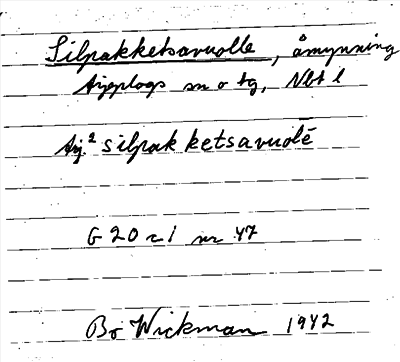 Silpakketsavuolle, åmynning
Arjeplogs sn o tg, Nbt l
Arj.² silpak ketsavuolē
G 20 c 1 nr 47
Bo Wickman 1942